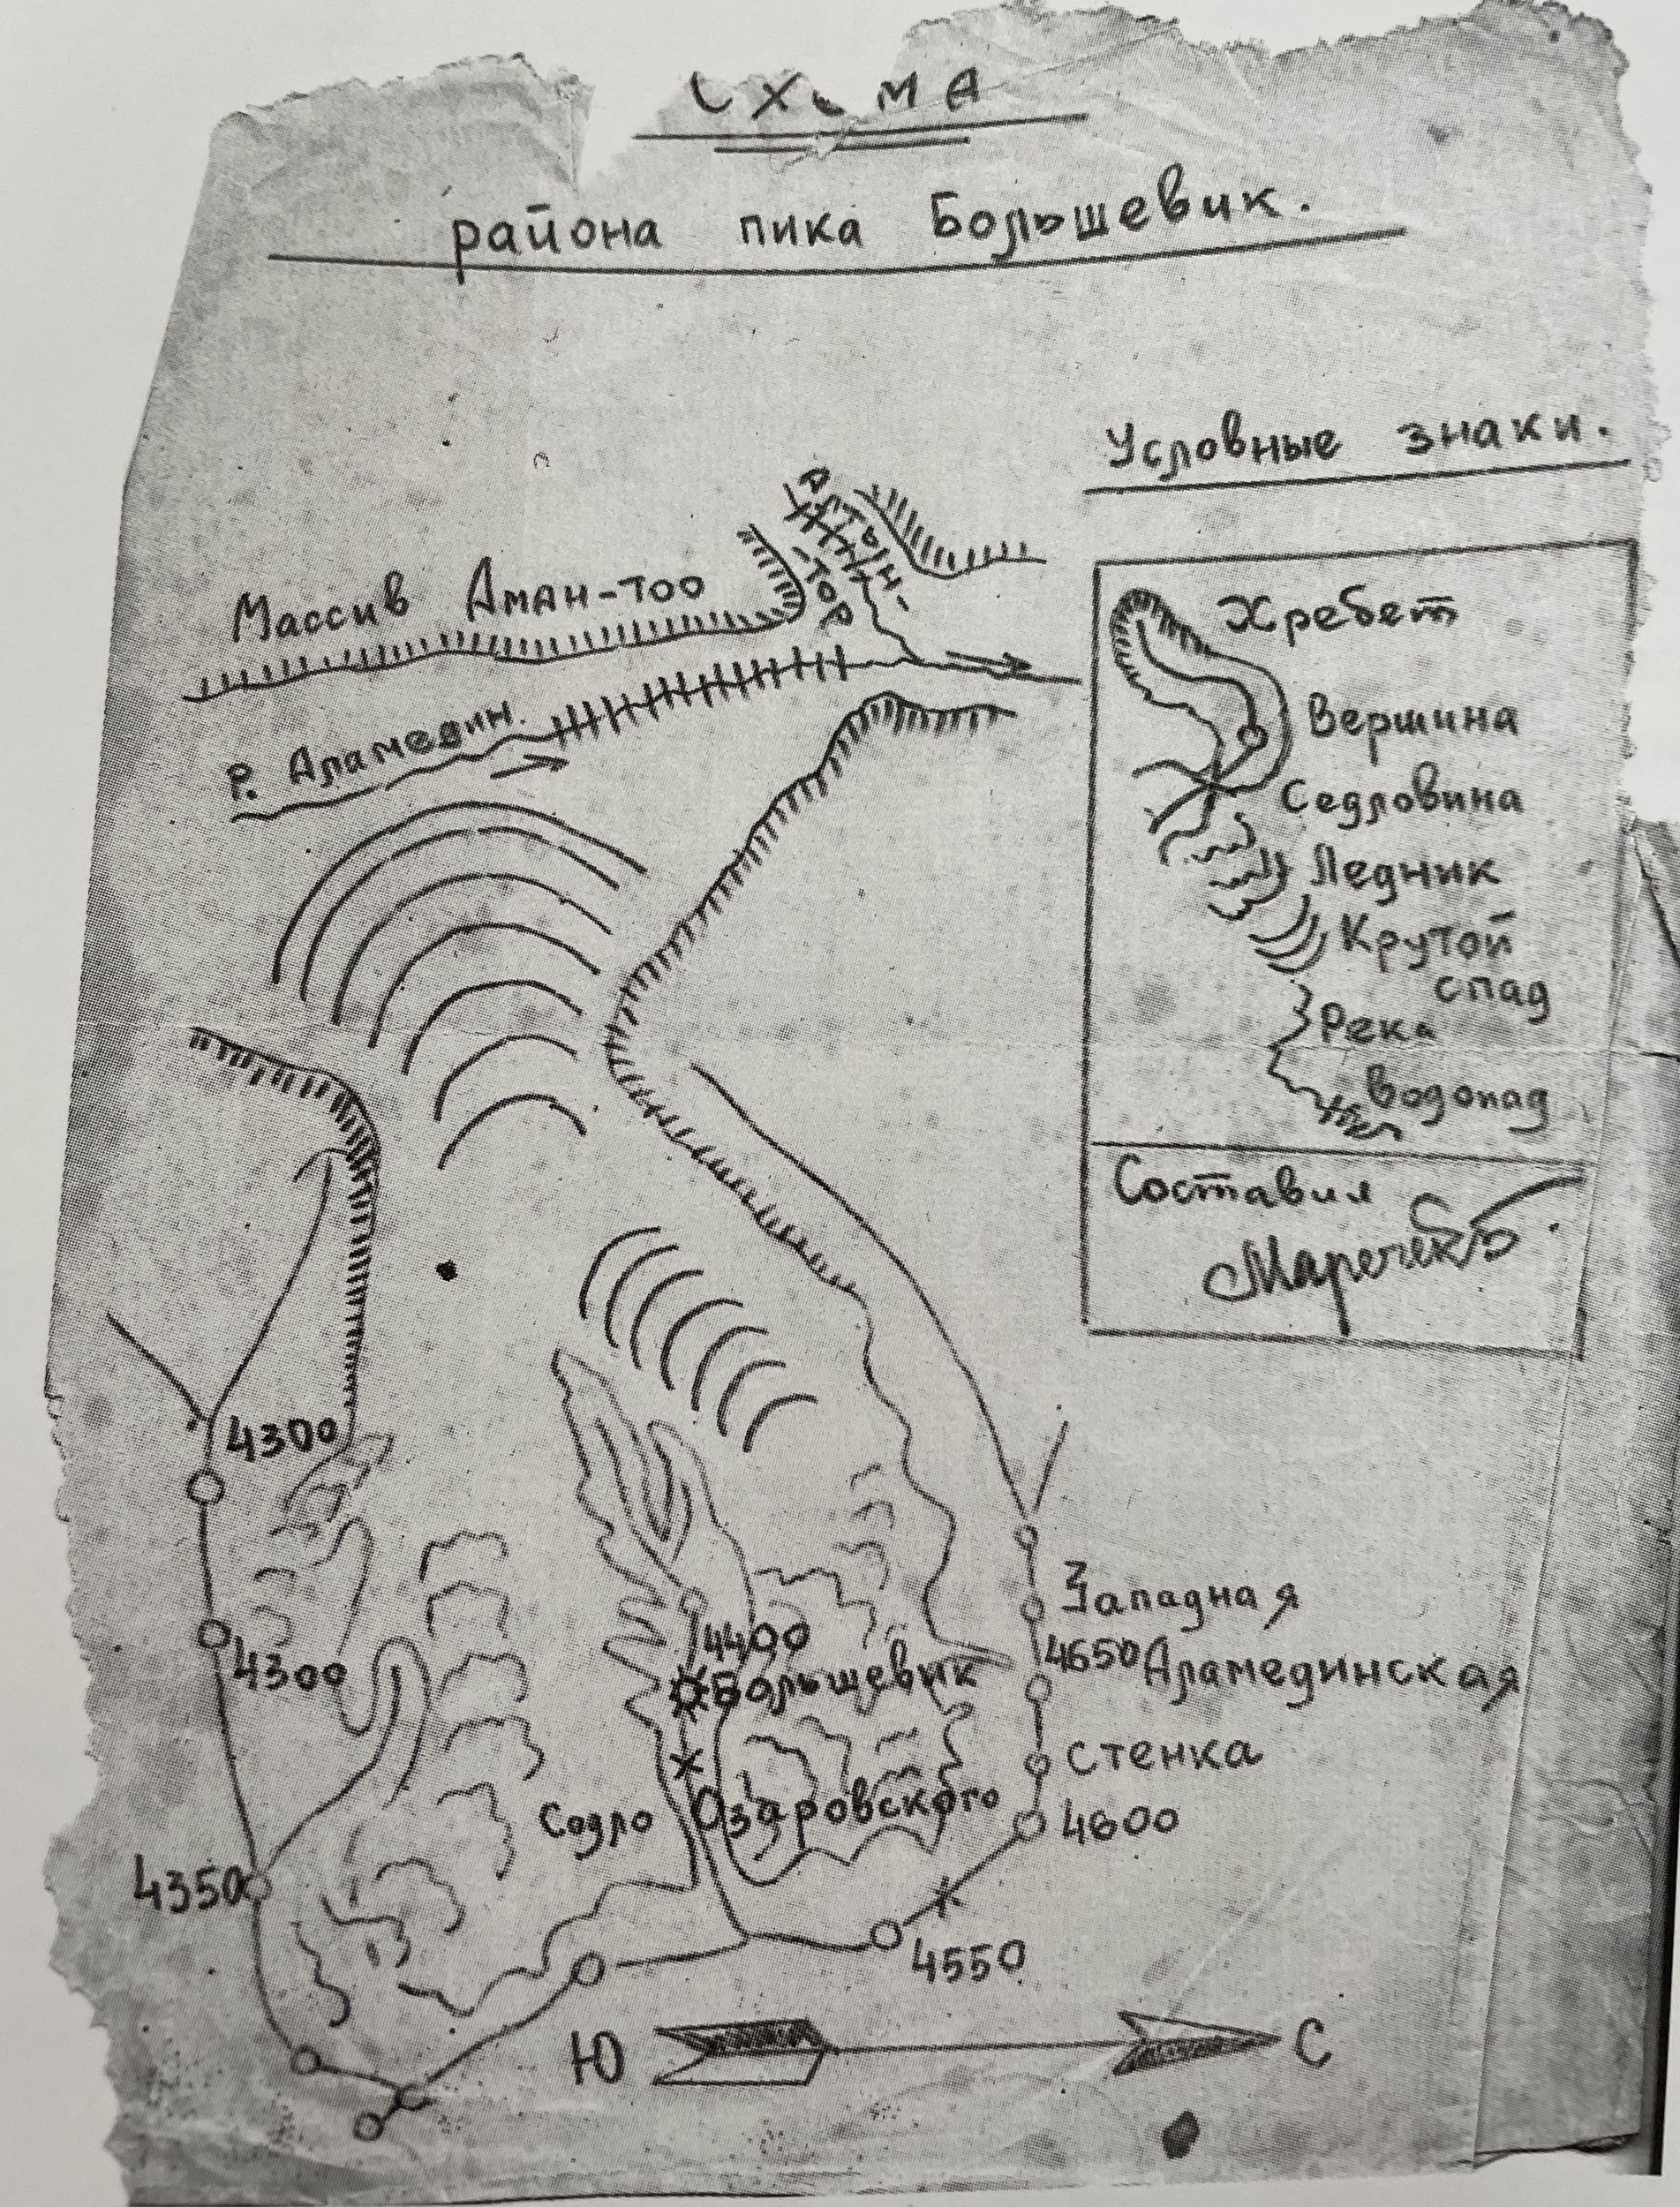 СХЕМА
района пика Большевик.
Условные знаки.
Массив Аман-тоо
Р. Аламедин.
Алтын-
-Тор
Хребет
Вершина
Седловина
Ледник
Крутой
спад
Река
Водопад
Составил
Маречек Б.
4300
4300
4350
4400
Большевик
Седло Озаровского
Западная
4650 Аламединская
стенка
4600
4550
Ю
С